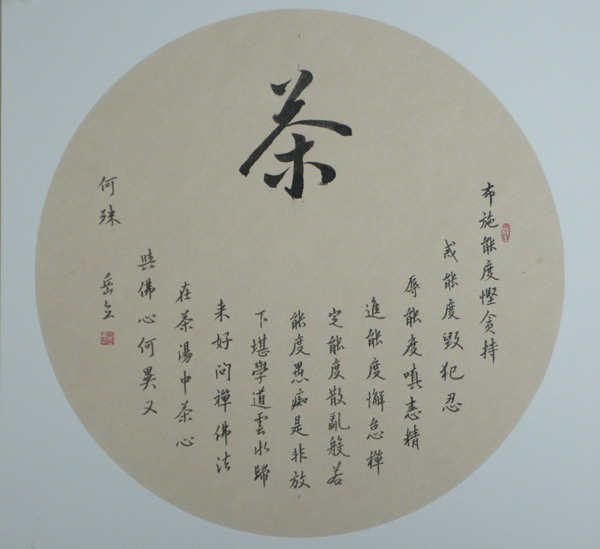 茶
布施能度慳贪持
戒能度毀犯忍
辱能度嗔恚精
進能度懈怠禪
定能度散亂般若
能度愚痴是非放
下堪學道雲水歸
来好问禪佛法
在茶湯中茶心
與佛心何異又
何殊
岳立